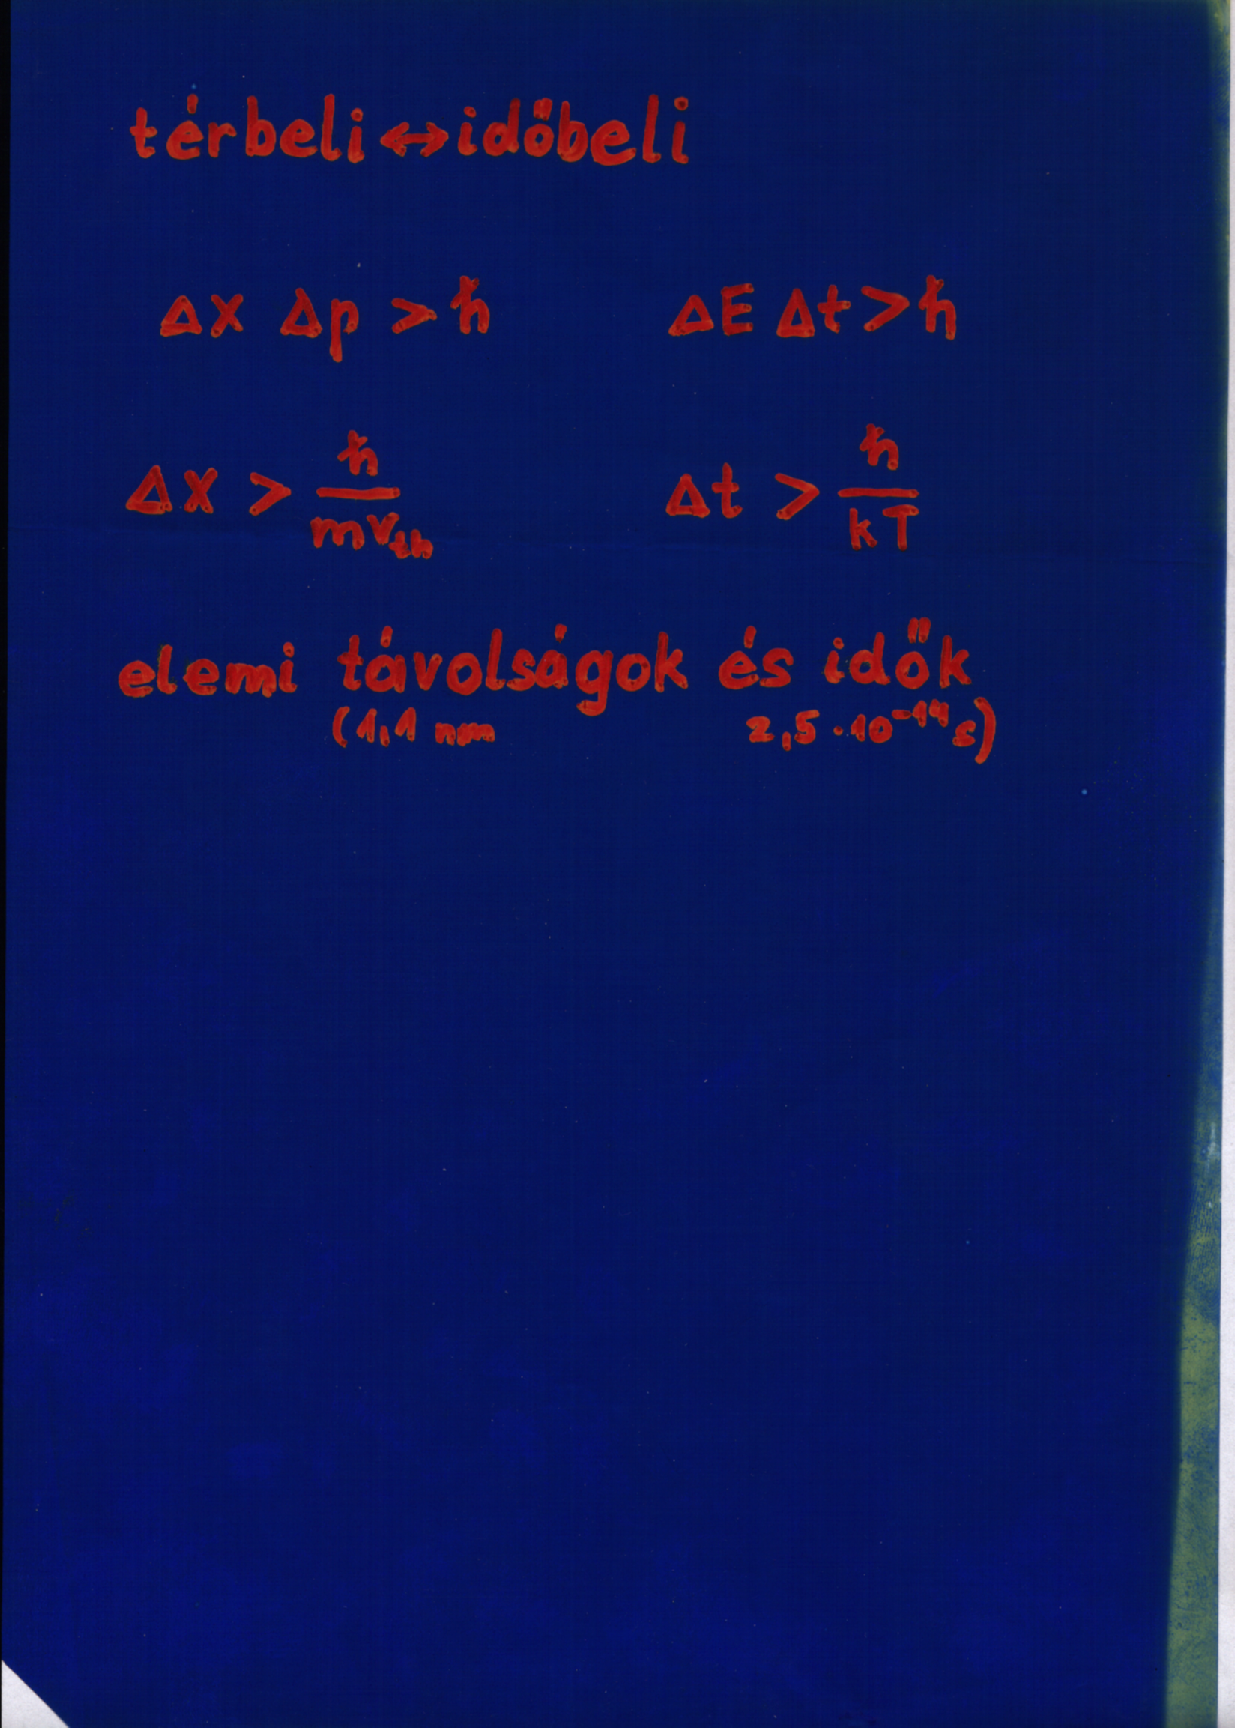 térbeli ↔ időbeli
Δx Δp > ħ ΔE Δt > ħ
Δx > ħ/mv_th Δt > ħ/kT
elemi távolságok és idők
(1,1 nm 2,5·10⁻¹⁴ s)